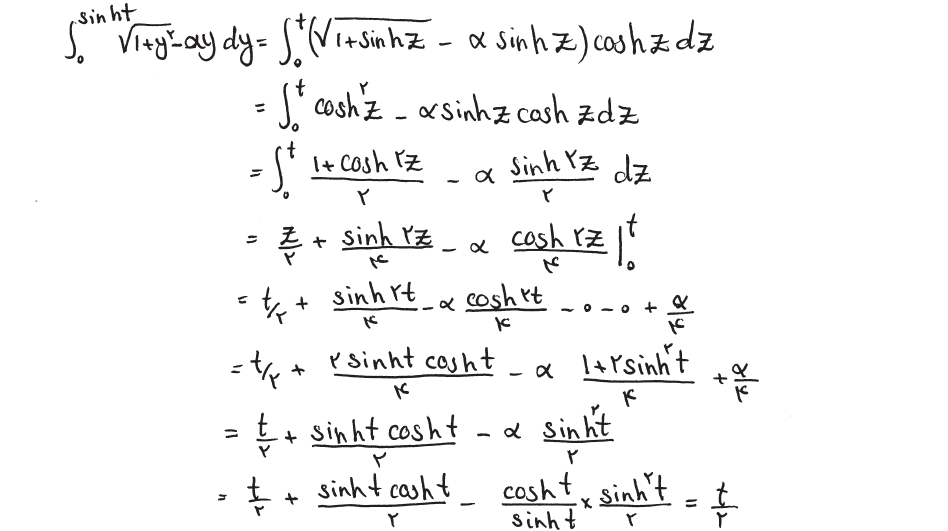 ∫₀^{sinht} √(1+y^۲) - αy dy = ∫₀^t (√(1+sinhz) - α sinhz) coshz dz
= ∫₀^t cosh^۲z - α sinhz cosh zdz
= ∫₀^t (1+cosh ۲z)/۲ - α (sinh ۲z)/۲ dz
= z/۲ + (sinh ۲z)/۴ - α (cosh ۲z)/۴ |₀^t
= t/۲ + (sinh ۲t)/۴ - α (cosh ۲t)/۴ - ۰ - ۰ + α/۴
= t/۲ + (۲ sinht cosht)/۴ - α (1+۲sinh^۲t)/۴ + α/۴
= t/۲ + (sinht cosht)/۲ - α (sinh^۲t)/۲
= t/۲ + (sinht cosht)/۲ - (cosht)/(sinht) × (sinh^۲t)/۲ = t/۲